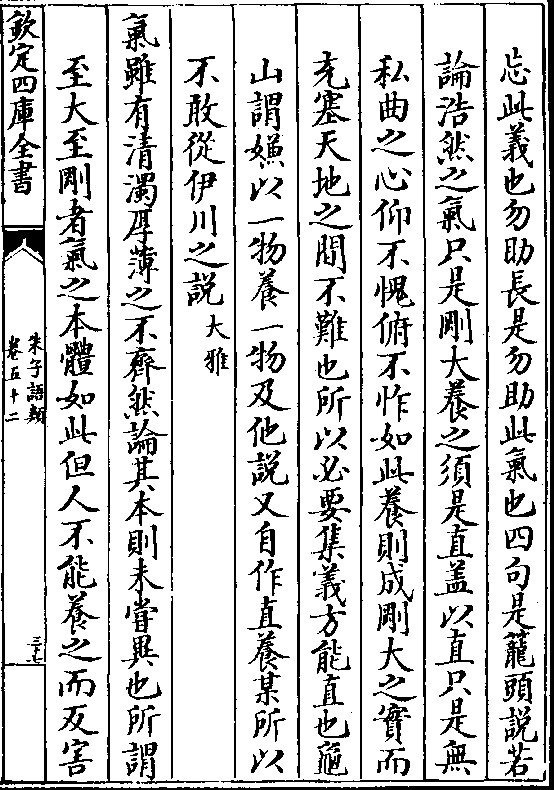 忘此義也勿助長是勿助此氣也四句是籠頭説若
論浩然之氣只是剛大養之須是直盖以直只是無
私曲之心仰不愧俯不怍如此養則成剛大之實而
充塞天地之間不難也所以必要集義方能直也龜
山謂嫌以一物養一物及他説又自作直養某所以
不敢從伊川之説大雅
氣雖有清濁厚薄之不齊然論其本則未嘗異也所謂
至大至剛者氣之本體如此但人不能養之而反害
欽定四庫全書
朱子語類
卷五十二
三七